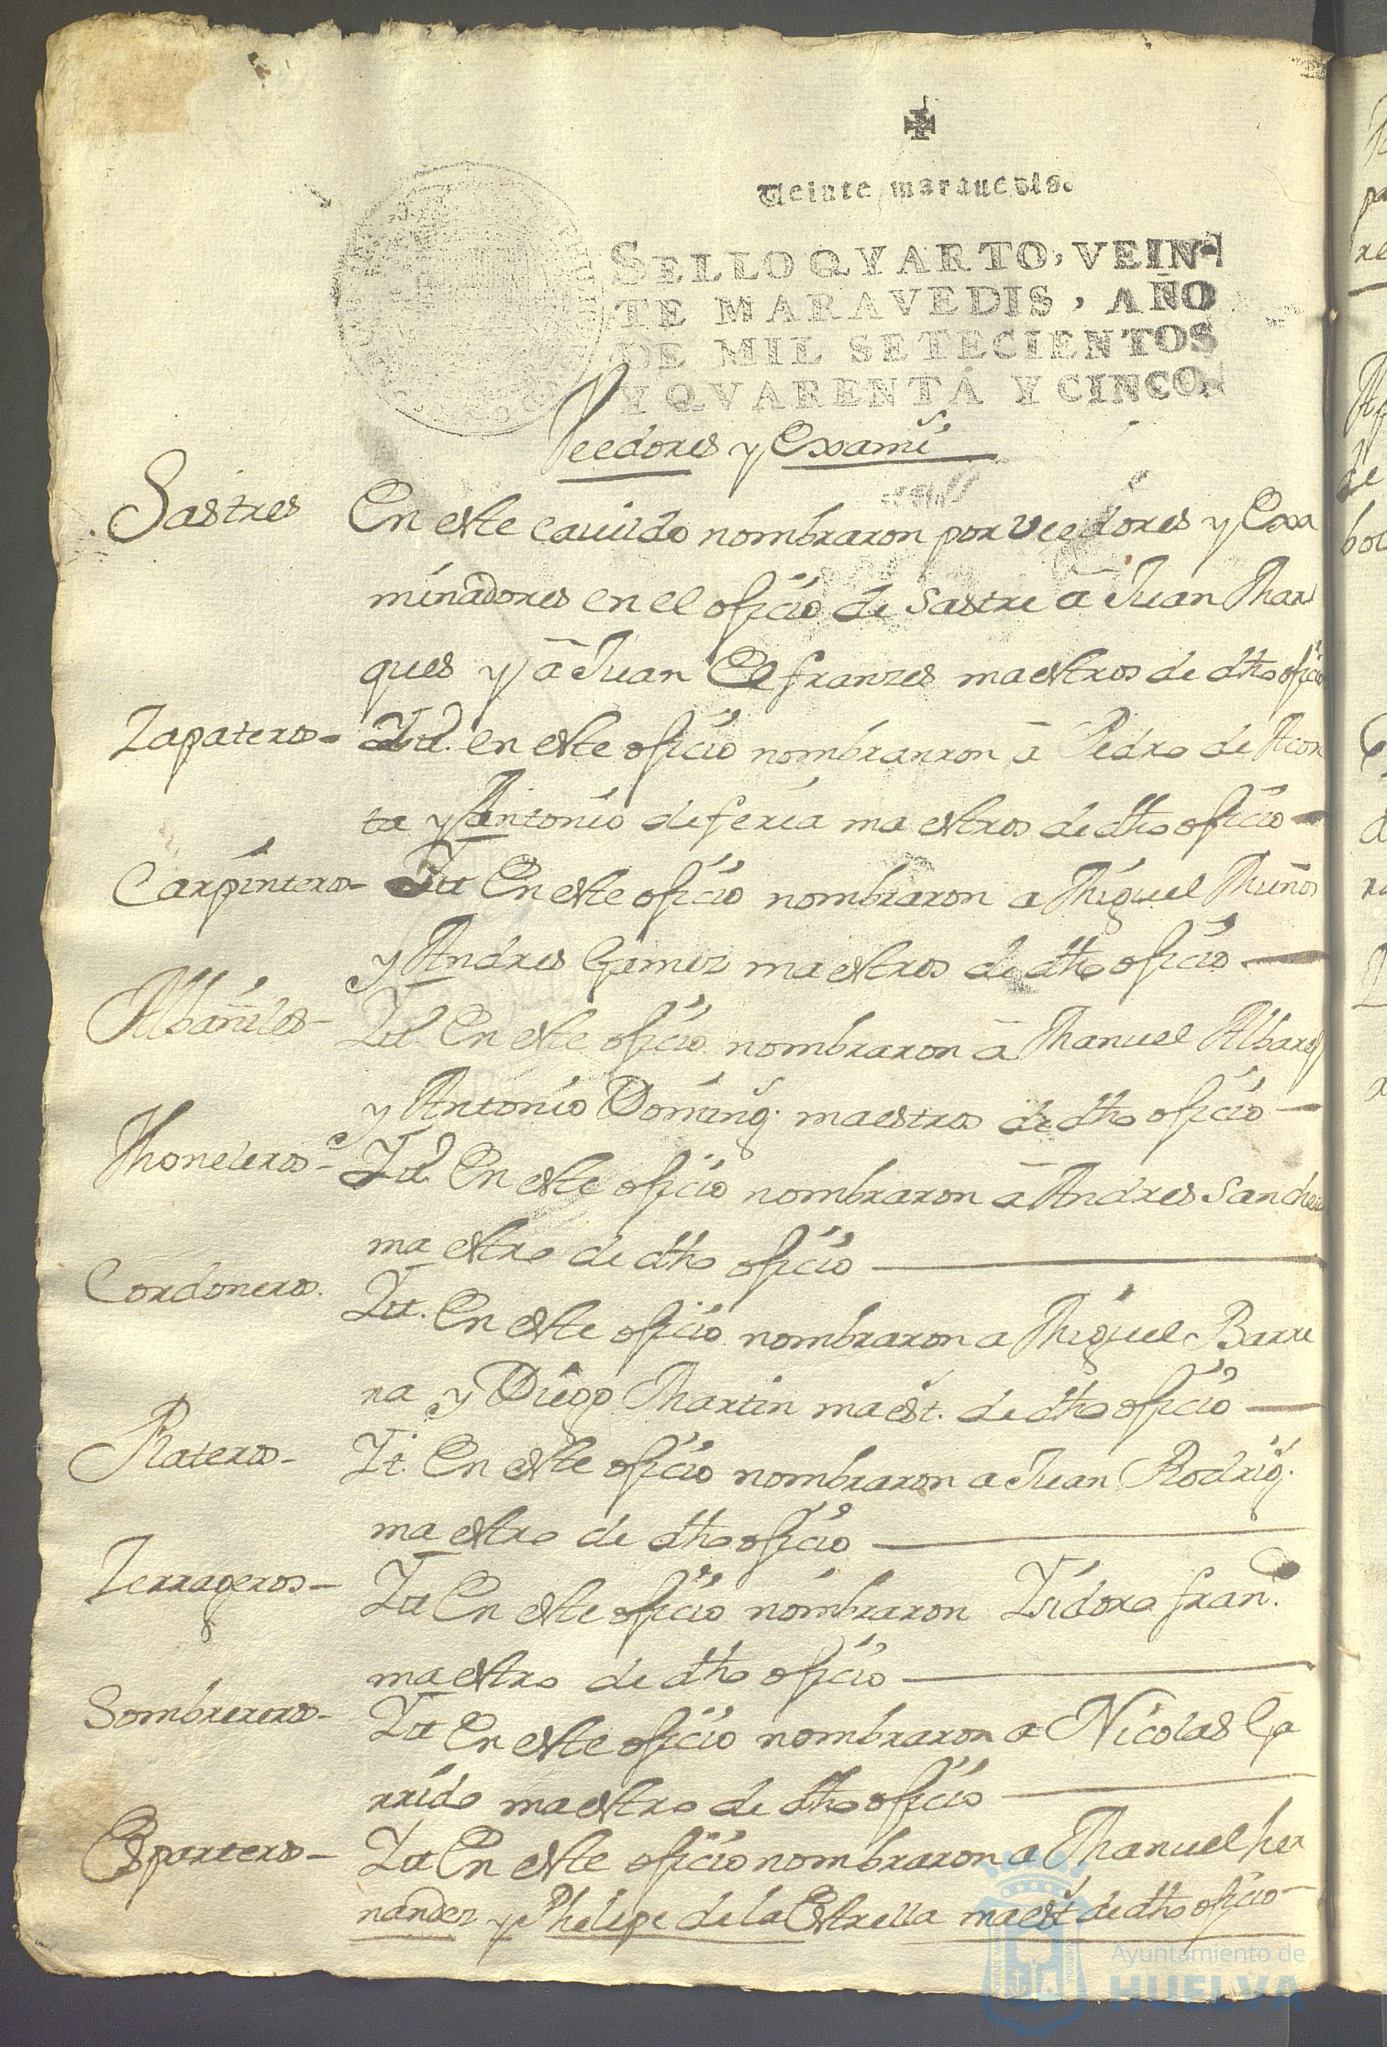 Veinte maravedis.
SELLO QVARTO, VEIN-
TE MARAVEDIS, AÑO
DE MIL SETECIENTOS
Y QVARENTA Y CINCO.
Veedores y Examˢ
Sastres En este cauildo nombraron por veedores y Exa
minadores en el oficio de sastre a Juan Mar
ques y a Juan El franzes maestros de dho oficio
Zapateros - Itt. en este oficio nombranron a Pedro de Acos
ta y Antonio de feria maestros de dho oficio
Carpinteros - Itt En este oficio nombraron a Miguel Muños
y Andres Gomez maestros de dho oficio
Albañiles - Itt En este oficio nombraron a Manuel Albarez
y Antonio Doming. maestros de dho oficio
Thoneleros - Itt. En este oficio nombraron a Andres Sanchez
maestro de dho oficio
Cordoneros. Itt. En este oficio nombraron a Miguel Barre
ra y Diego Martin maest. de dho oficio
Plateros - It. En este oficio nombraron a Juan Rodrig.
maestro de dho oficio
Zerrageros - Itt En este oficio nombraron Isidoro fran.ᶜᵒ
maestro de dho oficio
Sombrereros - Itt En este oficio nombraron a Nicolas Ga
rrido maestro de dho oficio
Esparteros - Itt En este oficio nombraron a Manuel her
nandez y Phelipe de la Estrella maest de dho oficio
Ayuntamiento de
HUELVA